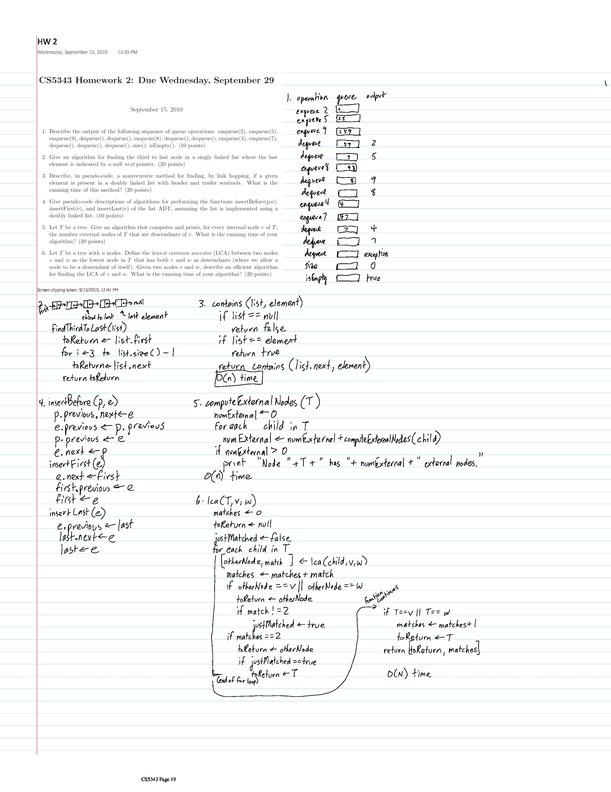 HW 2
Wednesday, September 15, 2010 12:39 PM
CS5343 Homework 2: Due Wednesday, September 29
September 15, 2010
1. Describe the output of the following sequence of queue operations: enqueue(2), enqueue(5),
enqueue(9), dequeue(), dequeue(), enqueue(8), dequeue(), dequeue(), enqueue(4), enqueue(7),
dequeue(), dequeue(), dequeue(), size(), isEmpty(). (10 points)
2. Give an algorithm for finding the third to last node in a singly linked list where the last
element is indicated by a null next pointer. (20 points)
3. Describe, in pseudo-code, a nonrecursive method for finding, by link hopping, if a given
element is present in a doubly linked list with header and trailer sentinels. What is the
running time of this method? (20 points)
4. Give pseudo-code descriptions of algorithms for performing the functions insertBefore(p,e),
insertFirst(e), and insertLast(e) of the list ADT, assuming the list is implemented using a
doubly linked list. (10 points)
5. Let T be a tree. Give an algorithm that computes and prints, for every internal node v of T,
the number external nodes of T that are descendants of v. What is the running time of your
algorithm? (20 points)
6. Let T be a tree with n nodes. Define the lowest common ancestor (LCA) between two nodes
v and w as the lowest node in T that has both v and w as descendants (where we allow a
node to be a descendant of itself). Given two nodes v and w, describe an efficient algorithm
for finding the LCA of v and w. What is the running time of your algorithm? (20 points)
Screen clipping taken: 9/15/2010, 12:41 PM
1. operation queue output
enqueue 2 2
enqueue 5 25
enqueue 9 259
dequeue 59 2
dequeue 9 5
enqueue 8 98
dequeue 8 9
dequeue 8
enqueue 4 4
enqueue 7 47
dequeue 7 4
dequeue 7
dequeue exception
size 0
isEmpty true
2. first null
third to last last element
findThirdToLast(list)
toReturn ← list.first
for i ← 3 to list.size() - 1
toReturn ← list.next
return toReturn
3. contains (list, element)
if list == null
return false
if list == element
return true
return contains (list.next, element)
O(n) time
4. insertBefore (p, e)
p.previous.next ← e
e.previous ← p.previous
p.previous ← e
e.next ← p
insertFirst(e)
e.next ← first
first.previous ← e
first ← e
insertLast(e)
e.previous ← last
last.next ← e
last ← e
5. computeExternalNodes (T)
numExternal ← 0
for each child in T
numExternal ← numExternal + computeExternalNodes (child)
if numExternal > 0
print "Node " + T + " has " + numExternal + " external nodes."
O(n) time
6. lca(T, v, w)
matches ← 0
toReturn ← null
justMatched ← false
for each child in T
[otherNode, match ] ← lca(child, v, w)
matches ← matches + match
if otherNode == v || otherNode == w
toReturn ← otherNode
if match != 2
justMatched ← true
if matches == 2
toReturn ← otherNode
if justMatched == true
toReturn ← T
(end of for loop)
function continues
if T == v || T == w
matches ← matches + 1
toReturn ← T
return [toReturn, matches]
O(N) time
CS5343 Page 19